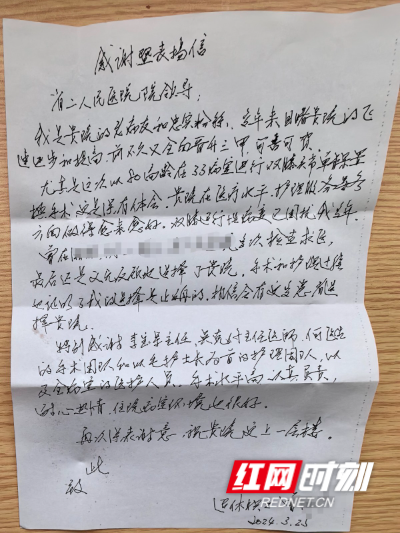 感谢暨表扬信
省二人民医院院领导:
我是贵院的老病友和忠实粉丝。多年来目睹贵院的飞
速进步和提高,前不久又全面晋升三甲,可喜可贺。
尤其是这次以80高龄在33病室进行双膝关节单髁置
换手术,更是深有体会。贵院在医疗水平、护理服务等多
方面做得愈来愈好。双膝退行性病变已困扰我多年,
曾在 多次检查求医,
最后还是义无反顾地选择了贵院。手术和护理过程
也证明了我的选择是正确的。相信会有更多患者选
择贵院。
特别感谢李 主任、吴 付主任医师、何医生
的手术团队和以毛护士长为首的护理团队,以
及全病室的医护人员。手术水平高、认真负责,
耐心热情,住院病室环境也很好。
再次深表谢意,祝贵院更上一层楼。
此
致
退休
2024.3.25
红网时刻
REDNET.CN